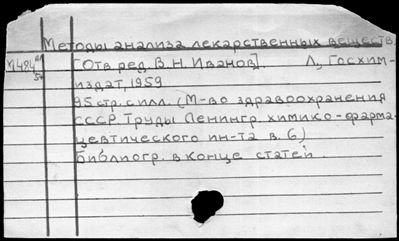 Методы анализа лекарственных веществ.
[Отв. ред. В. Н. Иванов]. Л., Госхим-
издат, 1959
95 стр. с илл. (М-во здравоохранения
СССР. Труды Ленингр. химико-фарма-
цевтического ин-та в. 6)
Библиогр. в конце статей.